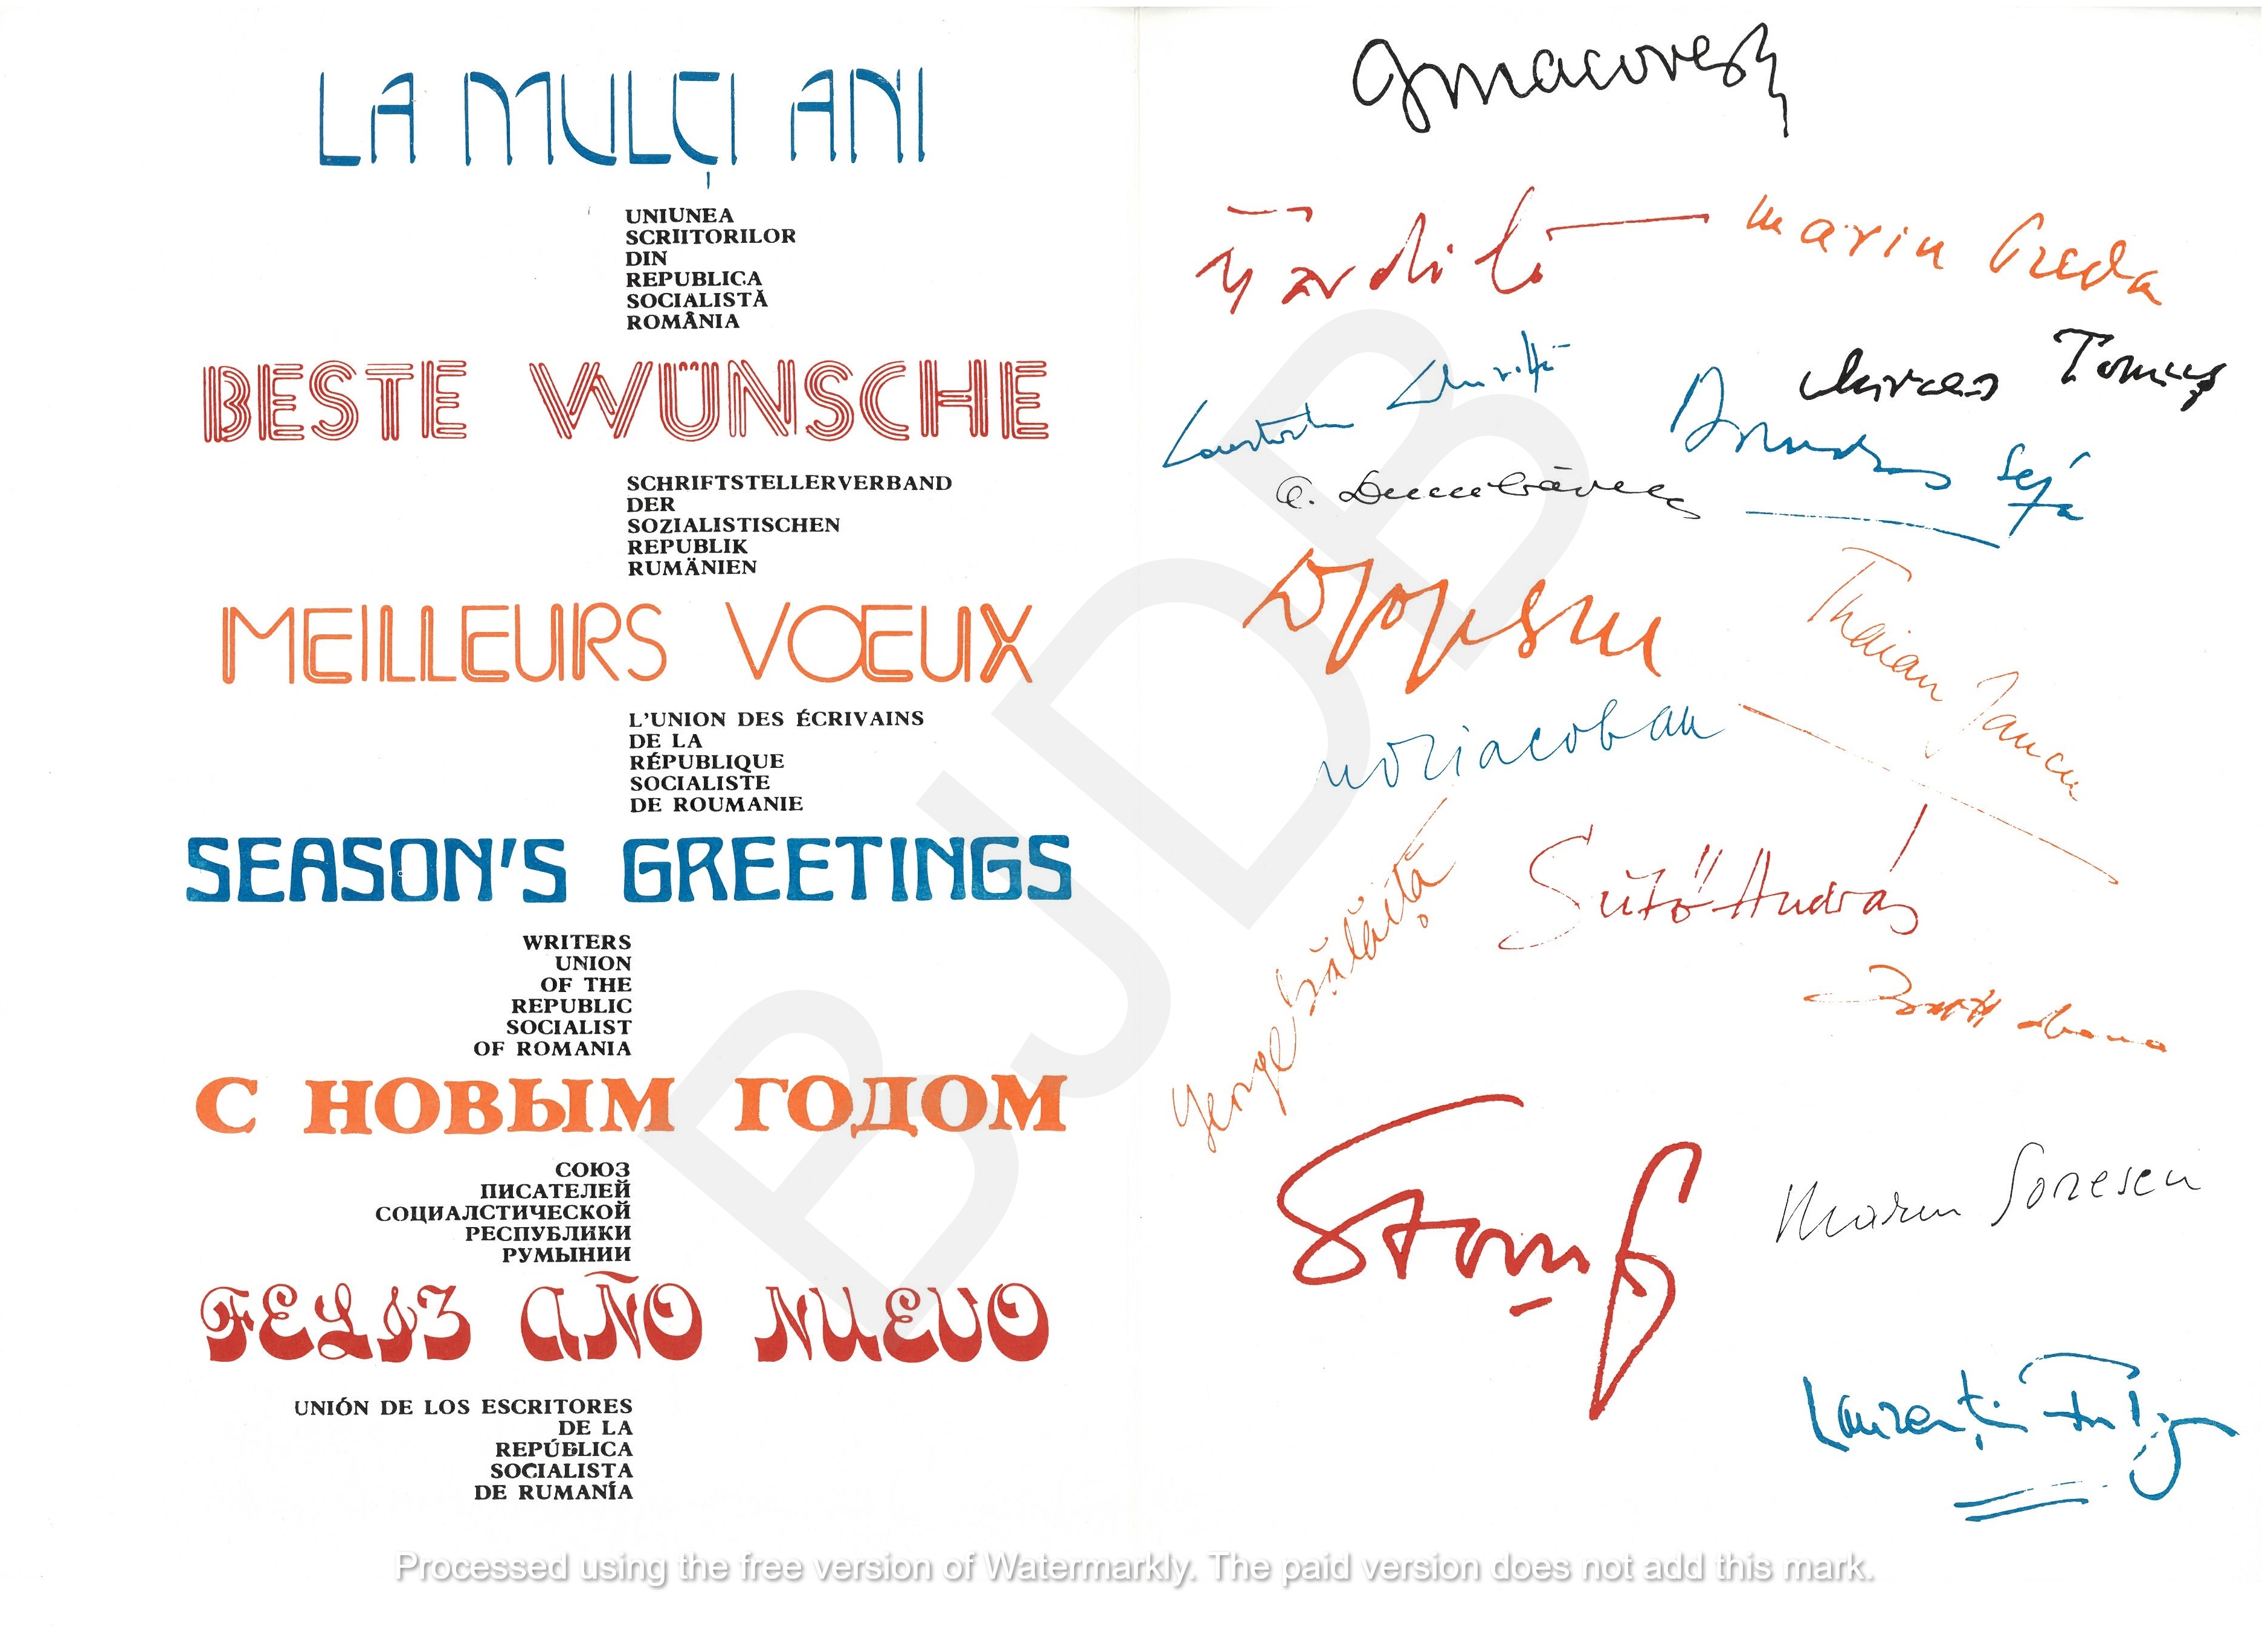 LA MULȚI ANI
UNIUNEA
SCRIITORILOR
DIN
REPUBLICA
SOCIALISTĂ
ROMÂNIA
BESTE WÜNSCHE
SCHRIFTSTELLERVERBAND
DER
SOZIALISTISCHEN
REPUBLIK
RUMÄNIEN
MEILLEURS VŒUX
L'UNION DES ÉCRIVAINS
DE LA
RÉPUBLIQUE
SOCIALISTE
DE ROUMANIE
SEASON'S GREETINGS
WRITERS
UNION
OF THE
REPUBLIC
SOCIALIST
OF ROMANIA
С НОВЫМ ГОДОМ
СОЮЗ
ПИСАТЕЛЕЙ
СОЦИАЛСТИЧЕСКОЙ
РЕСПУБЛИКИ
РУМЫНИИ
FELIZ AÑO NUEVO
UNIÓN DE LOS ESCRITORES
DE LA
REPÚBLICA
SOCIALISTA
DE RUMANÍA
gmacovescu
marin Preda
Mircea Tomuș
DPopescu
Traian Iancu
noriacoban
Sütő András
George Bălăiță
Marin Sorescu
Laurențiu Fulga
BJDB
Processed using the free version of Watermarkly. The paid version does not add this mark.